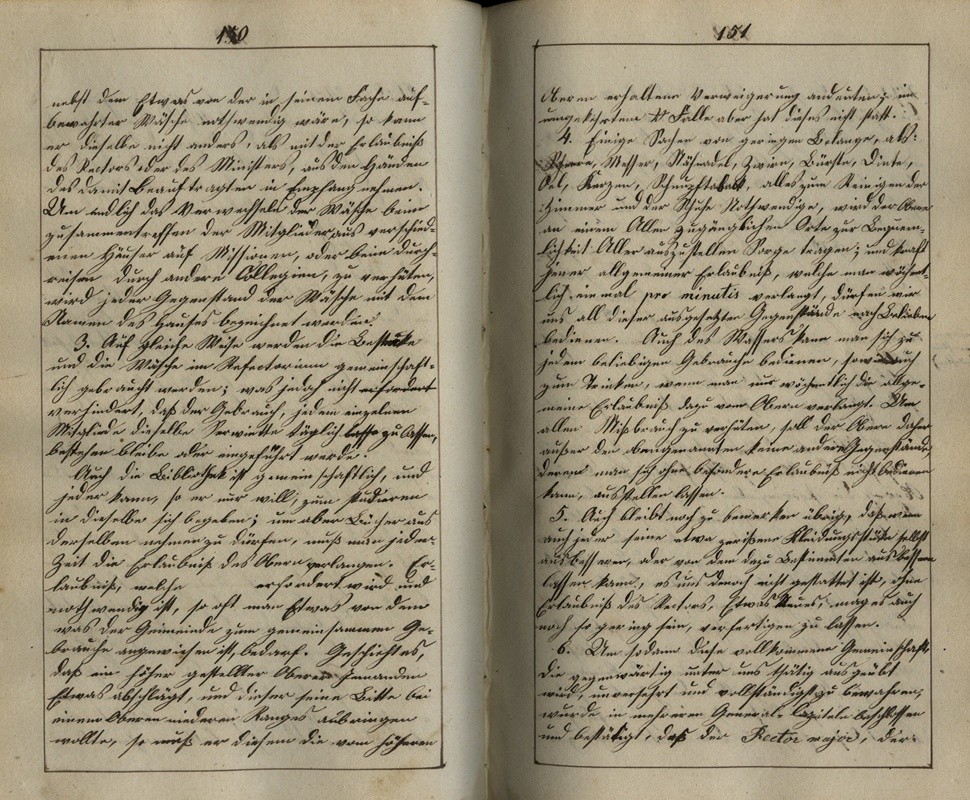 150
nebst dem Etwas von der in seinem Fache auf-
bewahrter Wäsche nothwendig wäre, so kann
er dieselbe nicht anders, als mit der Erlaubniß
des Rectors oder des Ministers, aus den Händen
des damit Beauftragten in Empfang nehmen.
Um endlich das Verwechseln der Wäsche beim
zusammentreffen der Mitglieder aus verschied-
enen Häuser auf Missionen, oder beim durch-
reisen durch andere Collegien, zu verhüten,
wird jeder Gegenstand der Wäsche mit dem
Namen des Hauses bezeichnet werden.
3. Auf gleiche Weise werden die Bestecke
und die Wäsche im Refectorium gemeinschaft-
lich gebraucht werden; was jedoch nicht erfordert
verhindert, daß der Gebrauch, jedem einzelnen
Mitgliede dieselbe Serviette täglich zu lassen,
bestehen bleibe oder eingeführt werde.
Auch die Bibliothek ist gemeinschaftlich, und
jeder kann, so er nur will, zum studieren
in dieselbe sich begeben; um aber Bücher aus
derselben nehmen zu dürfen, muß man jeder-
Zeit die Erlaubniß des Obern verlangen. Er-
laubniß, welche erfordert wird und
nothwendig ist, so oft man Etwas von dem
was der Gemeinde zum gemeinsammen Ge-
brauche angewiesen ist, bedarf. Geschieht es,
daß ein höher gestellter Oberer Jemanden
Etwas abschlägt, und dieser seine Bitte bei
einem Oberen niederen Ranges anbringen
wollte, so muß er diesem die vom höheren
151
Oberen erhaltene Verweigerung andeuten; im
umgekehrtem Falle aber hat dieses nicht statt.
4. Einige Sachen von geringem Belange, als:
Messer, Nähnadel, Zwirn, Bürste, Dinte,
Oel, Kerzen, Schnupftabak, alles zum Reinigen der
Zimmer und der Schuhe Nothwendige, wird der Obere
an einem Allen zugänglichen Orte zur Bequem-
lichkeit Aller auszustellen Sorge tragen; und kraft
jener allgemeiner Erlaubniß, welche man wöchent-
lich einmal pro minutis verlangt, dürfen wir
uns all dieser ausgesetzten Gegenstände nach Belieben
bedienen. Auch des Wassers kann man sich zu
jedem beliebigen Gebrauche bedienen, sowie auch
zum Trinken, wenn man nur wöchentlich die allge-
meine Erlaubniß dazu vom Obern verlangt. Um
allen Mißbrauch zu verhüten, soll der Obern daher
außer den obengenannten keine andere Gegenstände,
deren man sich ohne besondere Erlaubniß nicht bedienen
kann, ausstellen lassen.
5. Auch bleibt noch zu bemerken übrig, daß wenn
auch jeder seine etwa zerrißene Kleidungsstücke selbst
ausbessern, oder von dem dazu Bestimmten ausbessern
lassen kann, es uns dennoch nicht gestattet ist, ohne
Erlaubniß des Rectors, Etwas Neues, mag es auch
noch so gering sein, verfertigen zu lassen.
6. Um sodann diese vollkommene Gemeinschaft,
die gegenwärtig unter uns thätig ausgeübt
wird, unversehrt und vollständigst zu bewahren,
wurde in mehreren General-Capiteln beschlossen
und bestätigt, daß der Rector major, der-